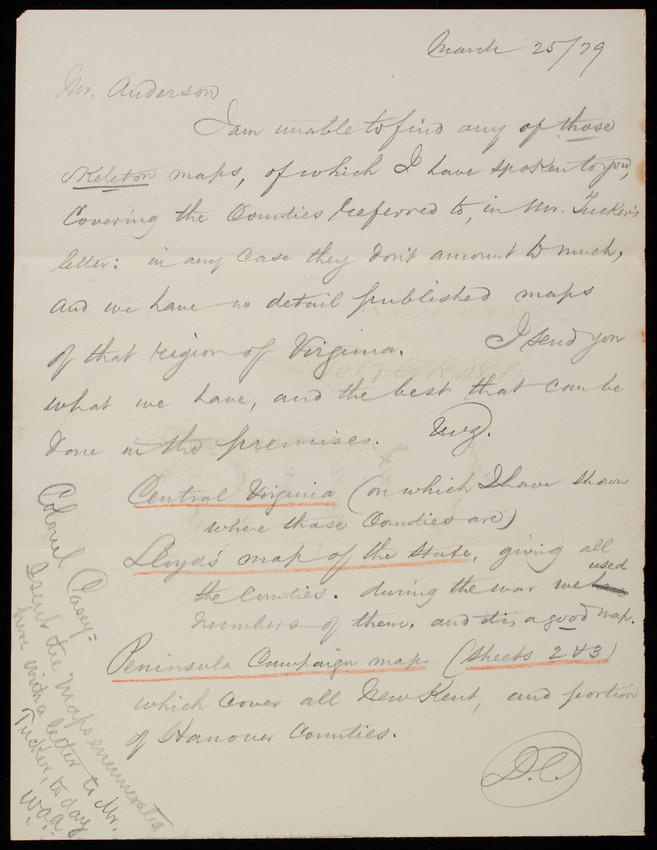 March 25/79
Mr. Anderson
I am unable to find any of those
skeleton maps, of which I have spoken to you,
covering the Counties referred to, in Mr. Tucker's
letter: in any case they don't amount to much,
and we have no detail published maps
of that region of Virginia. I send you
what we have, and the best that can be
done in the premises. viz.
Central Virginia (on which I have shown
where those Counties are)
Lloyds' map of the state, giving all
the Counties. during the war we used
numbers of them. and it is a good map.
Peninsula Campaign map (sheets 2 & 3)
which cover all New Kent, and portion
of Hanover Counties.
D.C.
Colonel Casey=
I sent the maps enumerated
here with a letter to Mr.
Tucker, to day